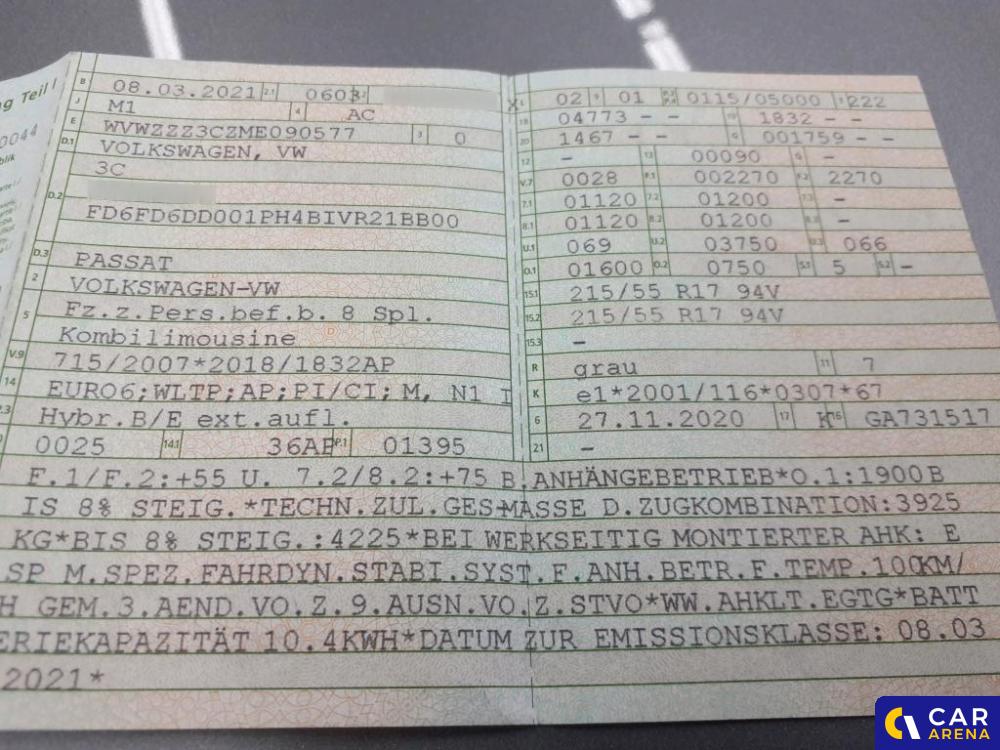 ng Teil I
0044
blik
B 08.03.2021 2.1 0603 2.2
J M1 4 AC
E WVWZZZ3CZME090577 3 0
D.1 VOLKSWAGEN, VW
3C
D.2
FD6FD6DD001PH4BIVR21BB00
D.3 PASSAT
2 VOLKSWAGEN-VW
5 Fz.z.Pers.bef.b. 8 Spl.
Kombilimousine
V.9 715/2007*2018/1832AP
14 EURO6;WLTP;AP;PI/CI; M, N1 I
P.3 Hybr.B/E ext.aufl.
0025 14.1 36AP P.1 01395
L 02 9 01 P.2 P.4 0115/05000 T 222
18 04773 - - 19 1832 - -
20 1467 - - G 001759 - -
12 - 13 00090 Q -
V.7 0028 F.1 002270 F.2 2270
7.1 01120 7.2 01200 7.3 -
8.1 01120 8.2 01200 8.3 -
U.1 069 U.2 03750 U.3 066
O.1 01600 O.2 0750 S.1 5 S.2 -
15.1 215/55 R17 94V
15.2 215/55 R17 94V
15.3 -
R grau 11 7
K e1*2001/116*0307*67
6 27.11.2020 17 K 16 GA731517
21 -
F.1/F.2:+55 U. 7.2/8.2:+75 B.ANHÄNGEBETRIEB*O.1:1900 B
IS 8% STEIG.*TECHN.ZUL.GES-MASSE D.ZUGKOMBINATION:3925
KG*BIS 8% STEIG.:4225*BEI WERKSEITIG MONTIERTER AHK: E
SP M.SPEZ.FAHRDYN.STABI.SYST.F.ANH.BETR.F.TEMP.100KM/
H GEM.3.AEND.VO.Z.9.AUSN.VO.Z.STVO*WW.AHKLT.EGTG*BATT
ERIEKAPAZITÄT 10.4KWH*DATUM ZUR EMISSIONSKLASSE: 08.03
2021*
CAR
ARENA